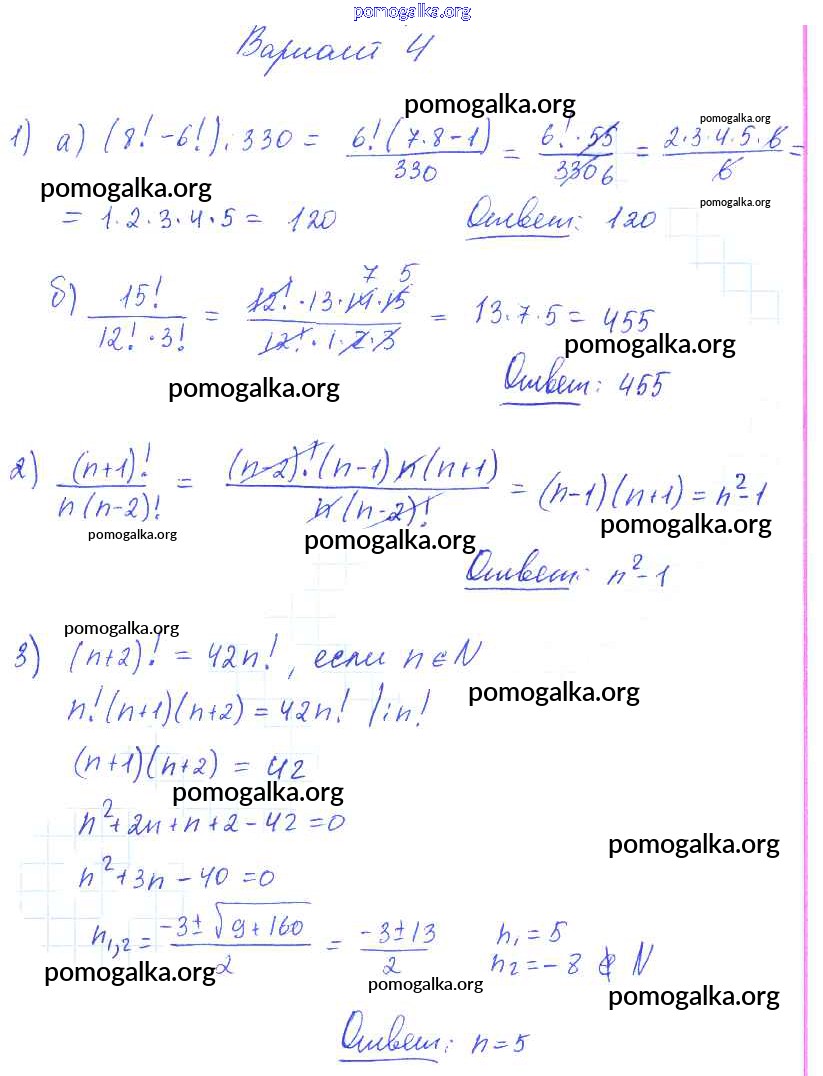 pomogalka.org
Вариант 4
pomogalka.org
1) а) (8! - 6!) : 330 = 6!(7·8-1)/330 = 6!·55/330 6 = 2·3·4·5·6/6 =
pomogalka.org
pomogalka.org
= 1·2·3·4·5 = 120 Ответ: 120
pomogalka.org
б) 15!/(12!·3!) = 12!·13·14·15/(12!·1·2·3) 7 5 = 13·7·5 = 455
pomogalka.org
pomogalka.org
Ответ: 455
2) (n+1)!/(n(n-2)!) = (n-2)!(n-1)n(n+1)/(n(n-2)!) = (n-1)(n+1) = n²-1
pomogalka.org
pomogalka.org
pomogalka.org
Ответ: n²-1
pomogalka.org
3) (n+2)! = 42n!, если n∈N
pomogalka.org
n!(n+1)(n+2) = 42n! /:n!
(n+1)(n+2) = 42
pomogalka.org
n²+2n+n+2-42=0
pomogalka.org
n²+3n-40=0
n₁,₂ = (-3±√(9+160))/2 = (-3±13)/2 n₁=5
n₂=-8 ∉ N
pomogalka.org
pomogalka.org
pomogalka.org
Ответ: n=5